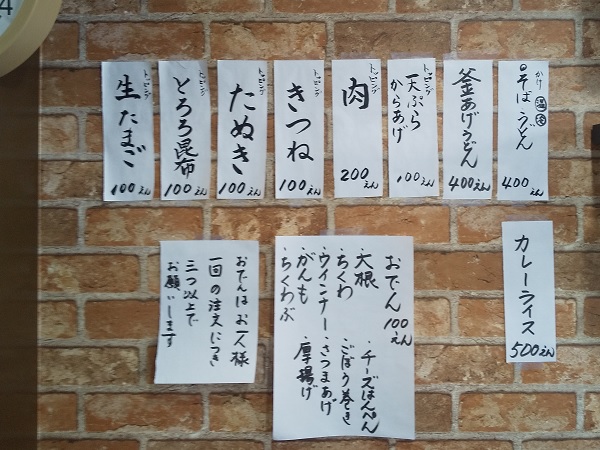 かけ 温 冷
そば うどん
400えん
釜あげうどん
400えん
トッピング
天ぷら
からあげ
100えん
トッピング
肉
200えん
トッピング
きつね
100えん
トッピング
たぬき
100えん
トッピング
とろろ昆布
100えん
トッピング
生たまご
100えん
カレーライス
500えん
おでん 100えん
・大根
・ちくわ
・ウインナー
・がんも
・ちくわぶ
・チーズはんぺん
・ごぼう巻き
・さつまあげ
・厚揚げ
おでんはお一人様
一回の注文につき
三つ以上で
お願いします
4